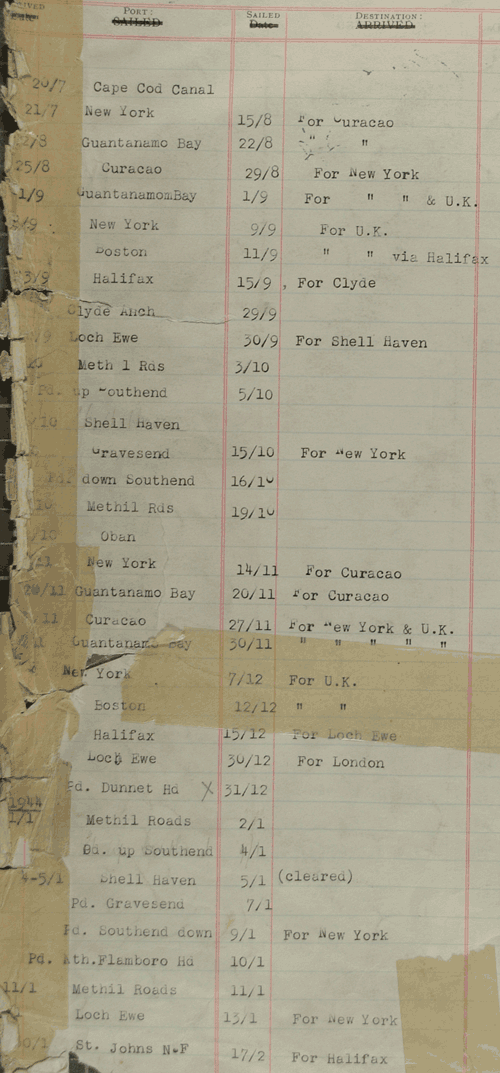 PORT: SAILED DESTINATION:
SAILED Date ARRIVED
20/7 Cape Cod Canal
21/7 New York 15/8 For Curacao
2/8 Guantanamo Bay 22/8 " "
25/8 Curacao 29/8 For New York
1/9 GuantanamomBay 1/9 For " " & U.K.
/9 New York 9/9 For U.K.
Boston 11/9 " " via Halifax
3/9 Halifax 15/9 , For Clyde
Clyde Anch 29/9
/9 Loch Ewe 30/9 For Shell Haven
Meth l Rds 3/10
Pd. up Southend 5/10
/10 Shell Haven
Gravesend 15/10 For New York
Pd. down Southend 16/10
/10 Methil Rds 19/10
/10 Oban
New York 14/11 For Curacao
20/11 Guantanamo Bay 20/11 For Curacao
11 Curacao 27/11 For New York & U.K.
Guantanamo Bay 30/11 " " " " "
New York 7/12 For U.K.
Boston 12/12 " "
Halifax 15/12 For Loch Ewe
Loch Ewe 30/12 For London
Pd. Dunnet Hd X 31/12
1944
1/1 Methil Roads 2/1
Pd. up Southend 4/1
4-5/1 Shell Haven 5/1 (cleared)
Pd. Gravesend 7/1
Pd. Southend down 9/1 For New York
Pd. Nth.Flamboro Hd 10/1
11/1 Methil Roads 11/1
Loch Ewe 13/1 For New York
0/1 St. Johns N.F 17/2 For Halifax